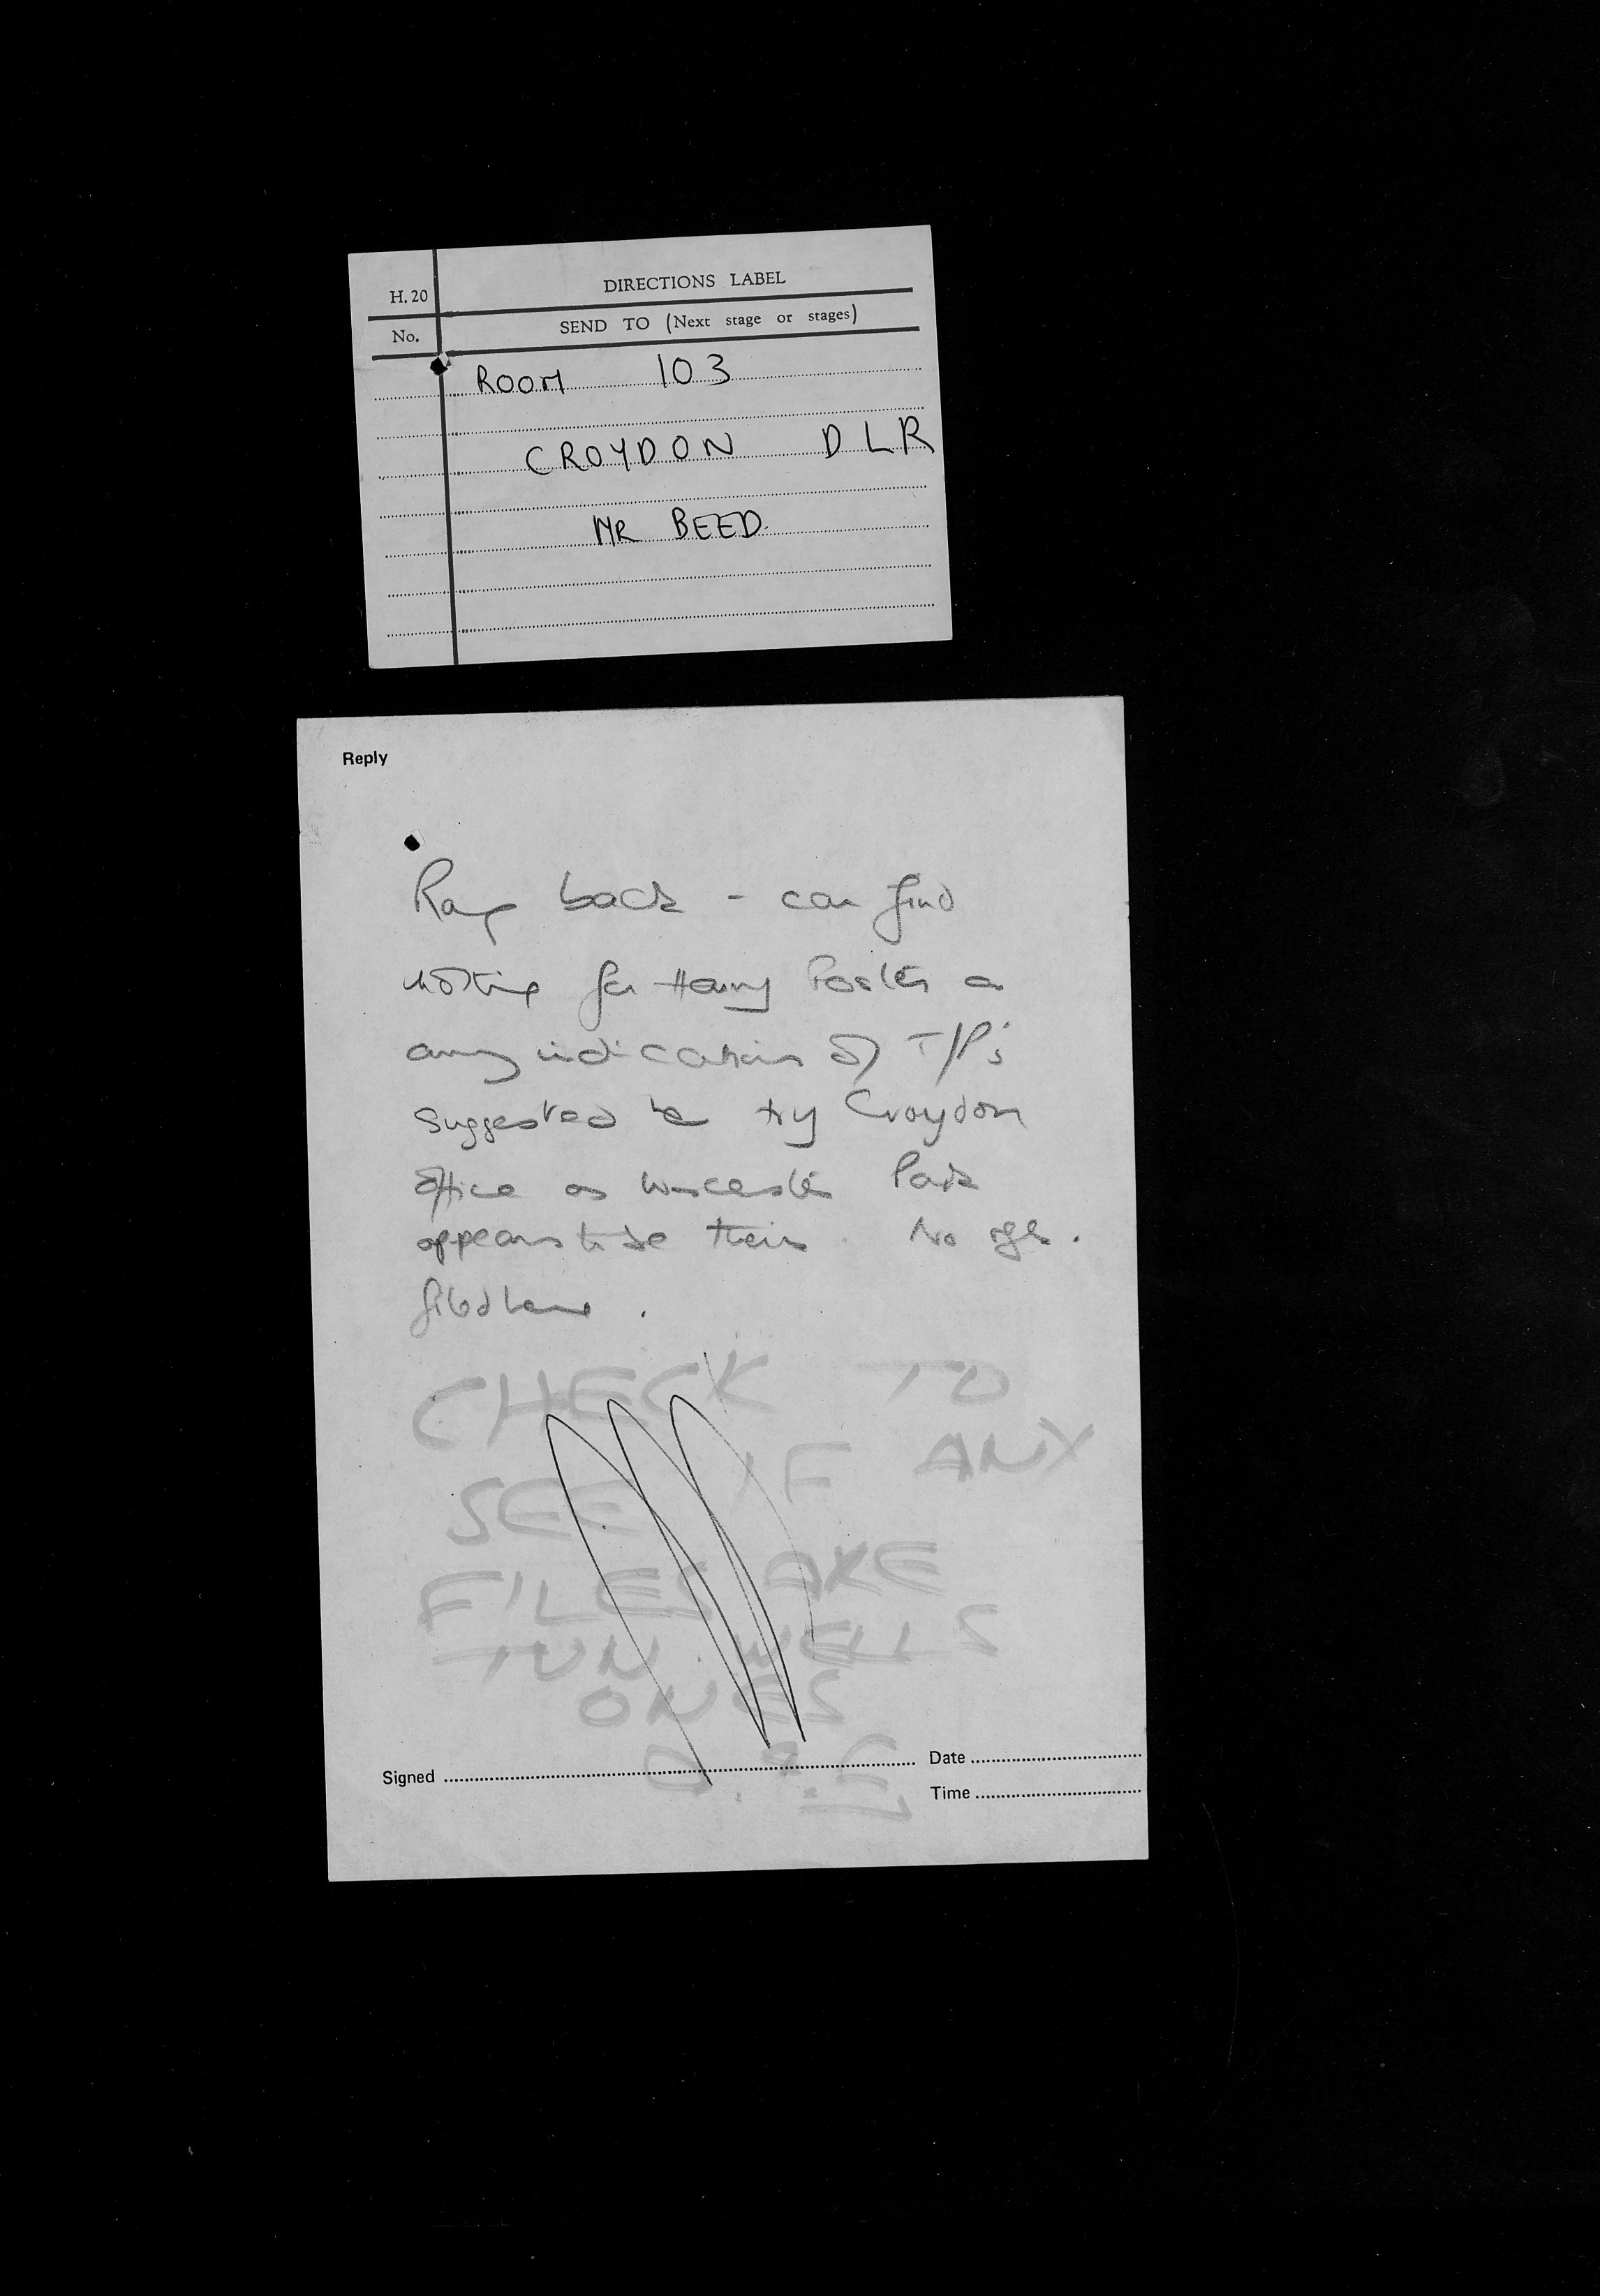 H. 20 DIRECTIONS LABEL
No. SEND TO (Next stage or stages)
ROOM 103
CROYDON DLR
MR BEED
Reply
Rang back - can find
nothing for Henry Foster or
any indication of T/P's
Suggested he try Croydon
office as Worcester Park
appears to be theirs. No
filed here.
CHECK TO
SEE IF ANY
FILES ARE
TUN. WELLS
ONES
Signed
Date
Time